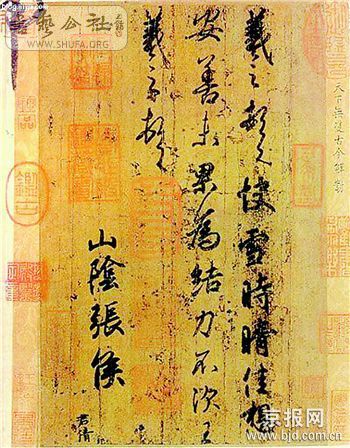 书艺公社
WWW.SHUFA.ORG
天下無雙古今鮮對
羲之頓首快雪時晴佳想
安善未果為結力不次王
羲之頓首
山陰張侯
君倩
京报网
www.bjd.com.cn